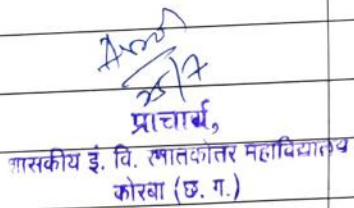 25/7
प्राचार्य,
शासकीय इं. वि. स्नातकोत्तर महाविद्यालय
कोरबा (छ. ग.)